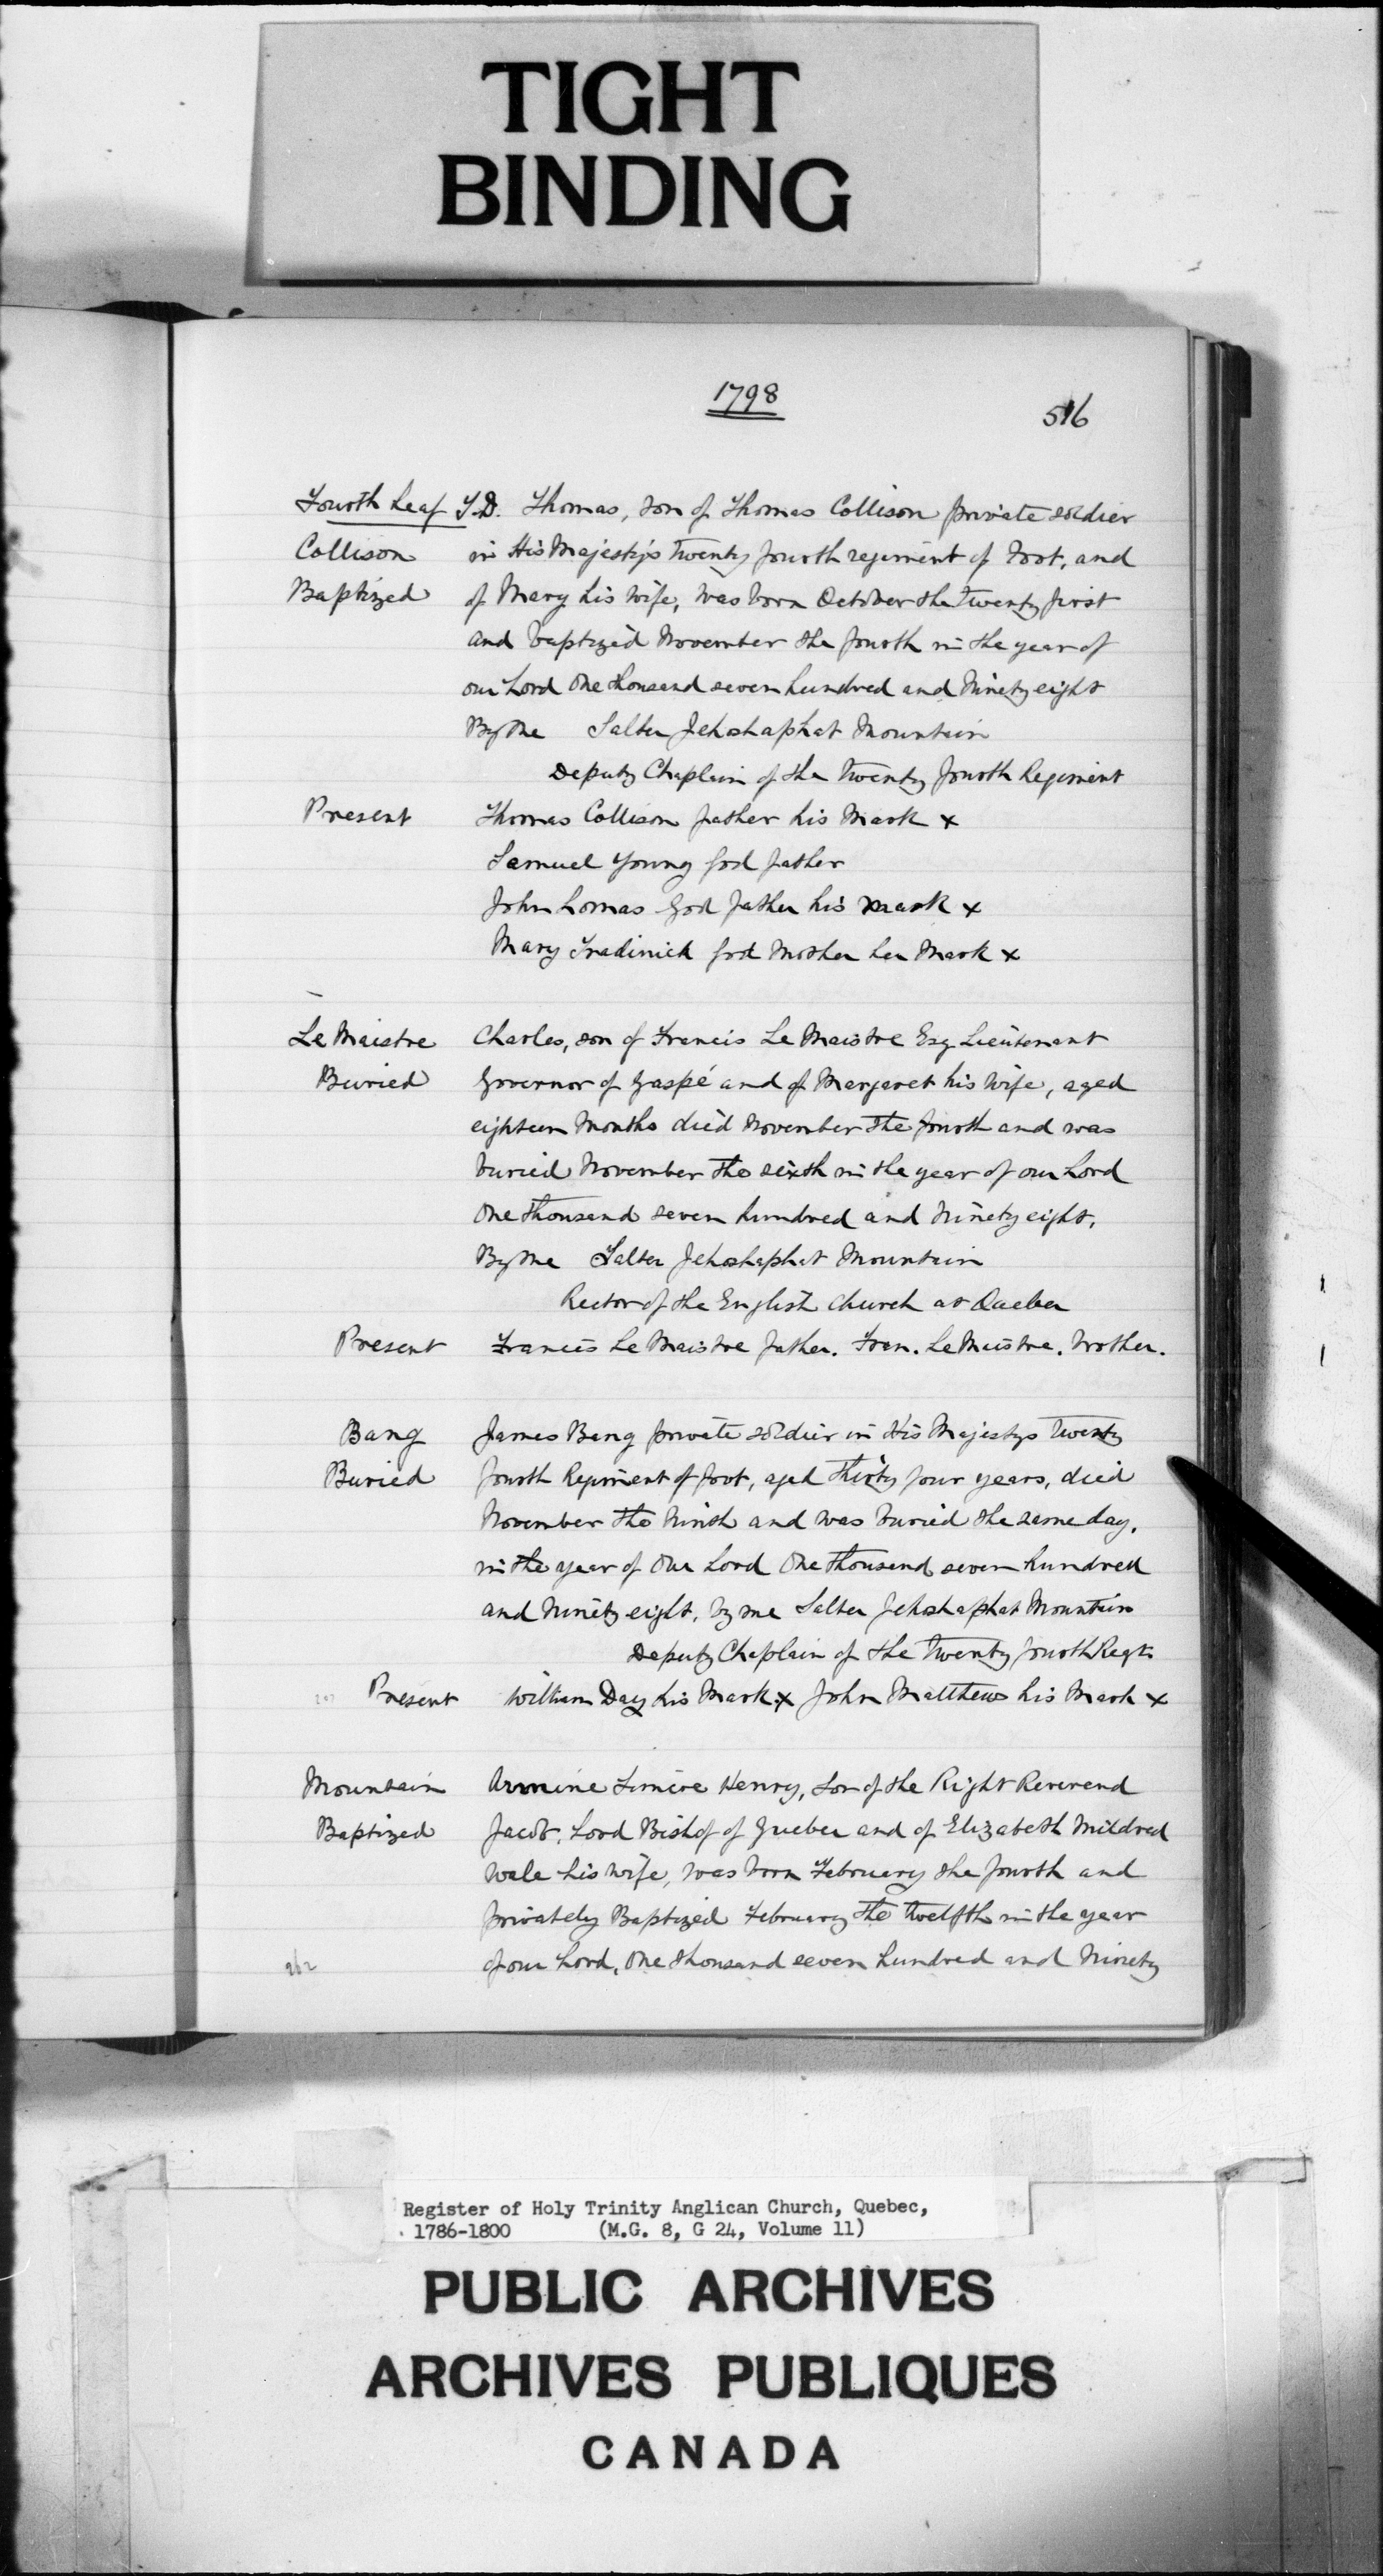 TIGHT
BINDING
1798
516
Fourth Leaf T.D. Thomas, son of Thomas Collison private soldier
Collison in His Majesty's twenty fourth regiment of Foot, and
Baptized of Mary his wife, was born October the twenty first
and baptized November the fourth in the year of
our Lord One thousand seven hundred and Ninety eight
By Me Salter Jehoshaphat Mountain
Deputy Chaplain of the Twenty fourth Regiment
Present Thomas Collison father his Mark x
Samuel Young God father
John Lomas God father his mark x
Mary Tradinick God Mother her Mark x
Le Maistre Charles, son of Francis Le Maistre Esq Lieutenant
Buried Governor of Gaspé and of Margaret his wife, aged
eighteen Months died November the fourth and was
buried November the sixth in the year of our Lord
One thousand seven hundred and Ninety eight,
By Me Salter Jehoshaphat Mountain
Rector of the English Church at Quebec
Present Francis Le Maistre father. Fran. Le Maistre. brother.
Bang James Bang private soldier in His Majestys Twenty
Buried fourth Regiment of foot, aged thirty four years, died
November the Ninth and was buried the same day,
in the year of Our Lord One thousand seven hundred
and Ninety eight, by me Salter Jehoshaphat Mountain
Deputy Chaplain of the Twenty fourth Regt
Present William Day his Mark x John Matthews his Mark x
Mountain Armine Henry, Son of the Right Reverend
Baptized Jacob, Lord Bishop of Quebec and of Elizabeth Mildred
Wale his wife, was born February the fourth and
privately Baptized February the twelfth in the year
262 of our Lord, One thousand seven hundred and Ninety
Register of Holy Trinity Anglican Church, Quebec,
1786-1800 (M.G. 8, G 24, Volume 11)
PUBLIC ARCHIVES
ARCHIVES PUBLIQUES
CANADA